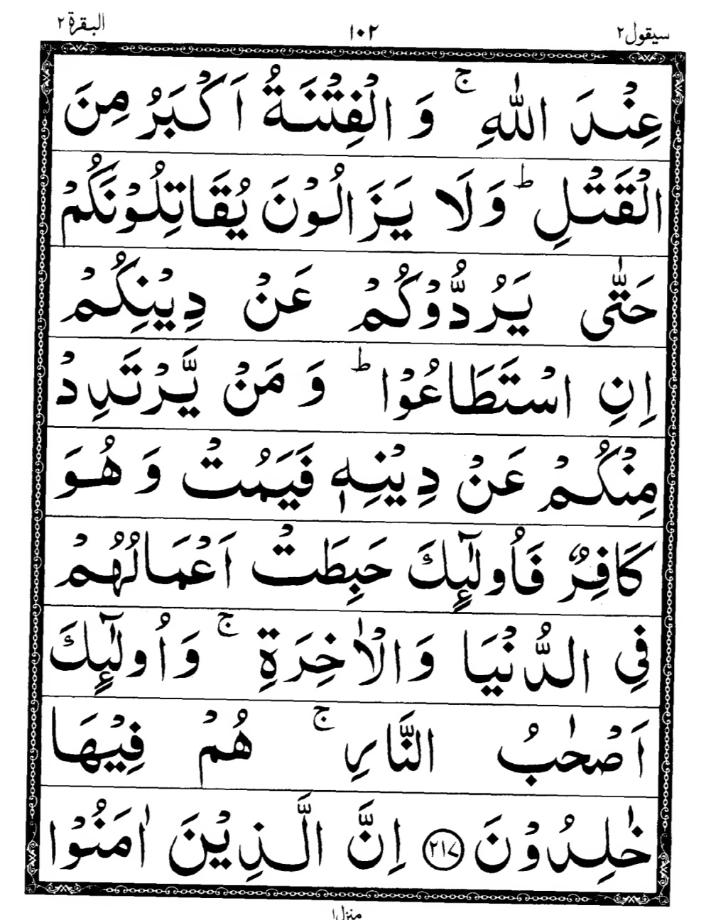 البقرة ٢ ١٠٢ سيقول ٢
عِنْدَ اللّٰهِ ۚ وَ الْفِتْنَةُ اَكْبَرُ مِنَ
الْقَتْلِ ؕ وَلَا يَزَالُوْنَ يُقَاتِلُوْنَكُمْ
حَتّٰى يَرُدُّوْكُمْ عَنْ دِيْنِكُمْ
اِنِ اسْتَطَاعُوْا ؕ وَ مَنْ يَّرْتَدِدْ
مِنْكُمْ عَنْ دِيْنِهٖ فَيَمُتْ وَ هُوَ
كَافِرٌ فَاُولٰٓئِكَ حَبِطَتْ اَعْمَالُهُمْ
فِي الدُّنْيَا وَالْاٰخِرَةِ ۚ وَاُولٰٓئِكَ
اَصْحٰبُ النَّارِ ۚ هُمْ فِيْهَا
خٰلِدُوْنَ ﴿٢١٧﴾ اِنَّ الَّذِيْنَ اٰمَنُوْا
منزل ١